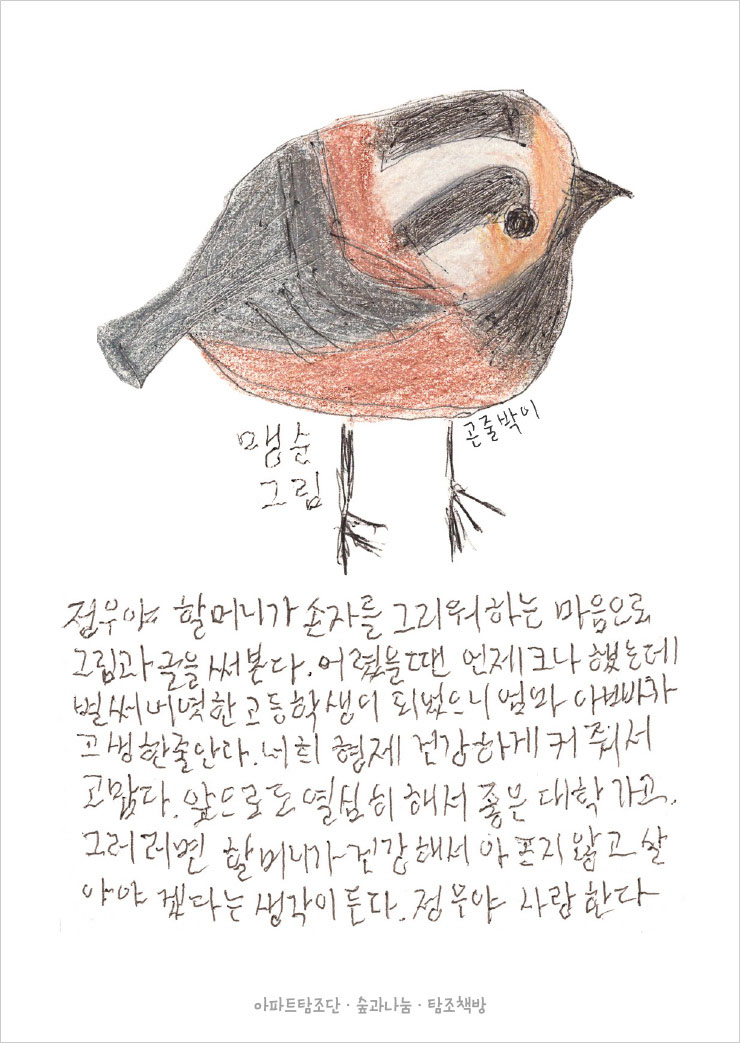 맹순
그림
곤줄박이
정우야 할머니가 손자를 그리워하는 마음으로
그림과 글을 써본다. 어렸을땐 언제크나 했는데
벌써 어엿한 고등학생이 되었으니 엄마 아빠가
고생한줄안다. 너희 형제 건강하게 커줘서
고맙다. 앞으로도 열심히 해서 좋은 대학 가고.
그러려면 할머니가 건강해서 아프지 않고 살
아야 겠다는 생각이 든다. 정우야 사랑한다
아파트탐조단 · 숲과나눔 · 탐조책방